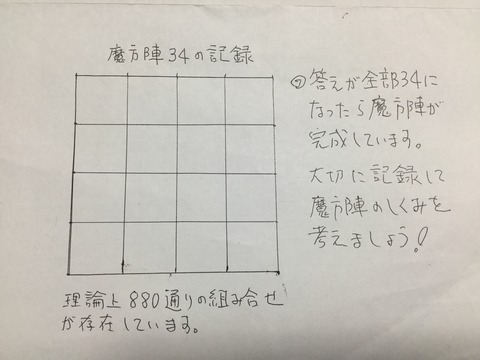 魔方陣34の記録
㋒答えが全部34に
なったら魔方陣が
完成しています。
大切に記録して
魔方陣のしくみを
考えましょう!
理論上880通りの組み合せ
が存在しています。